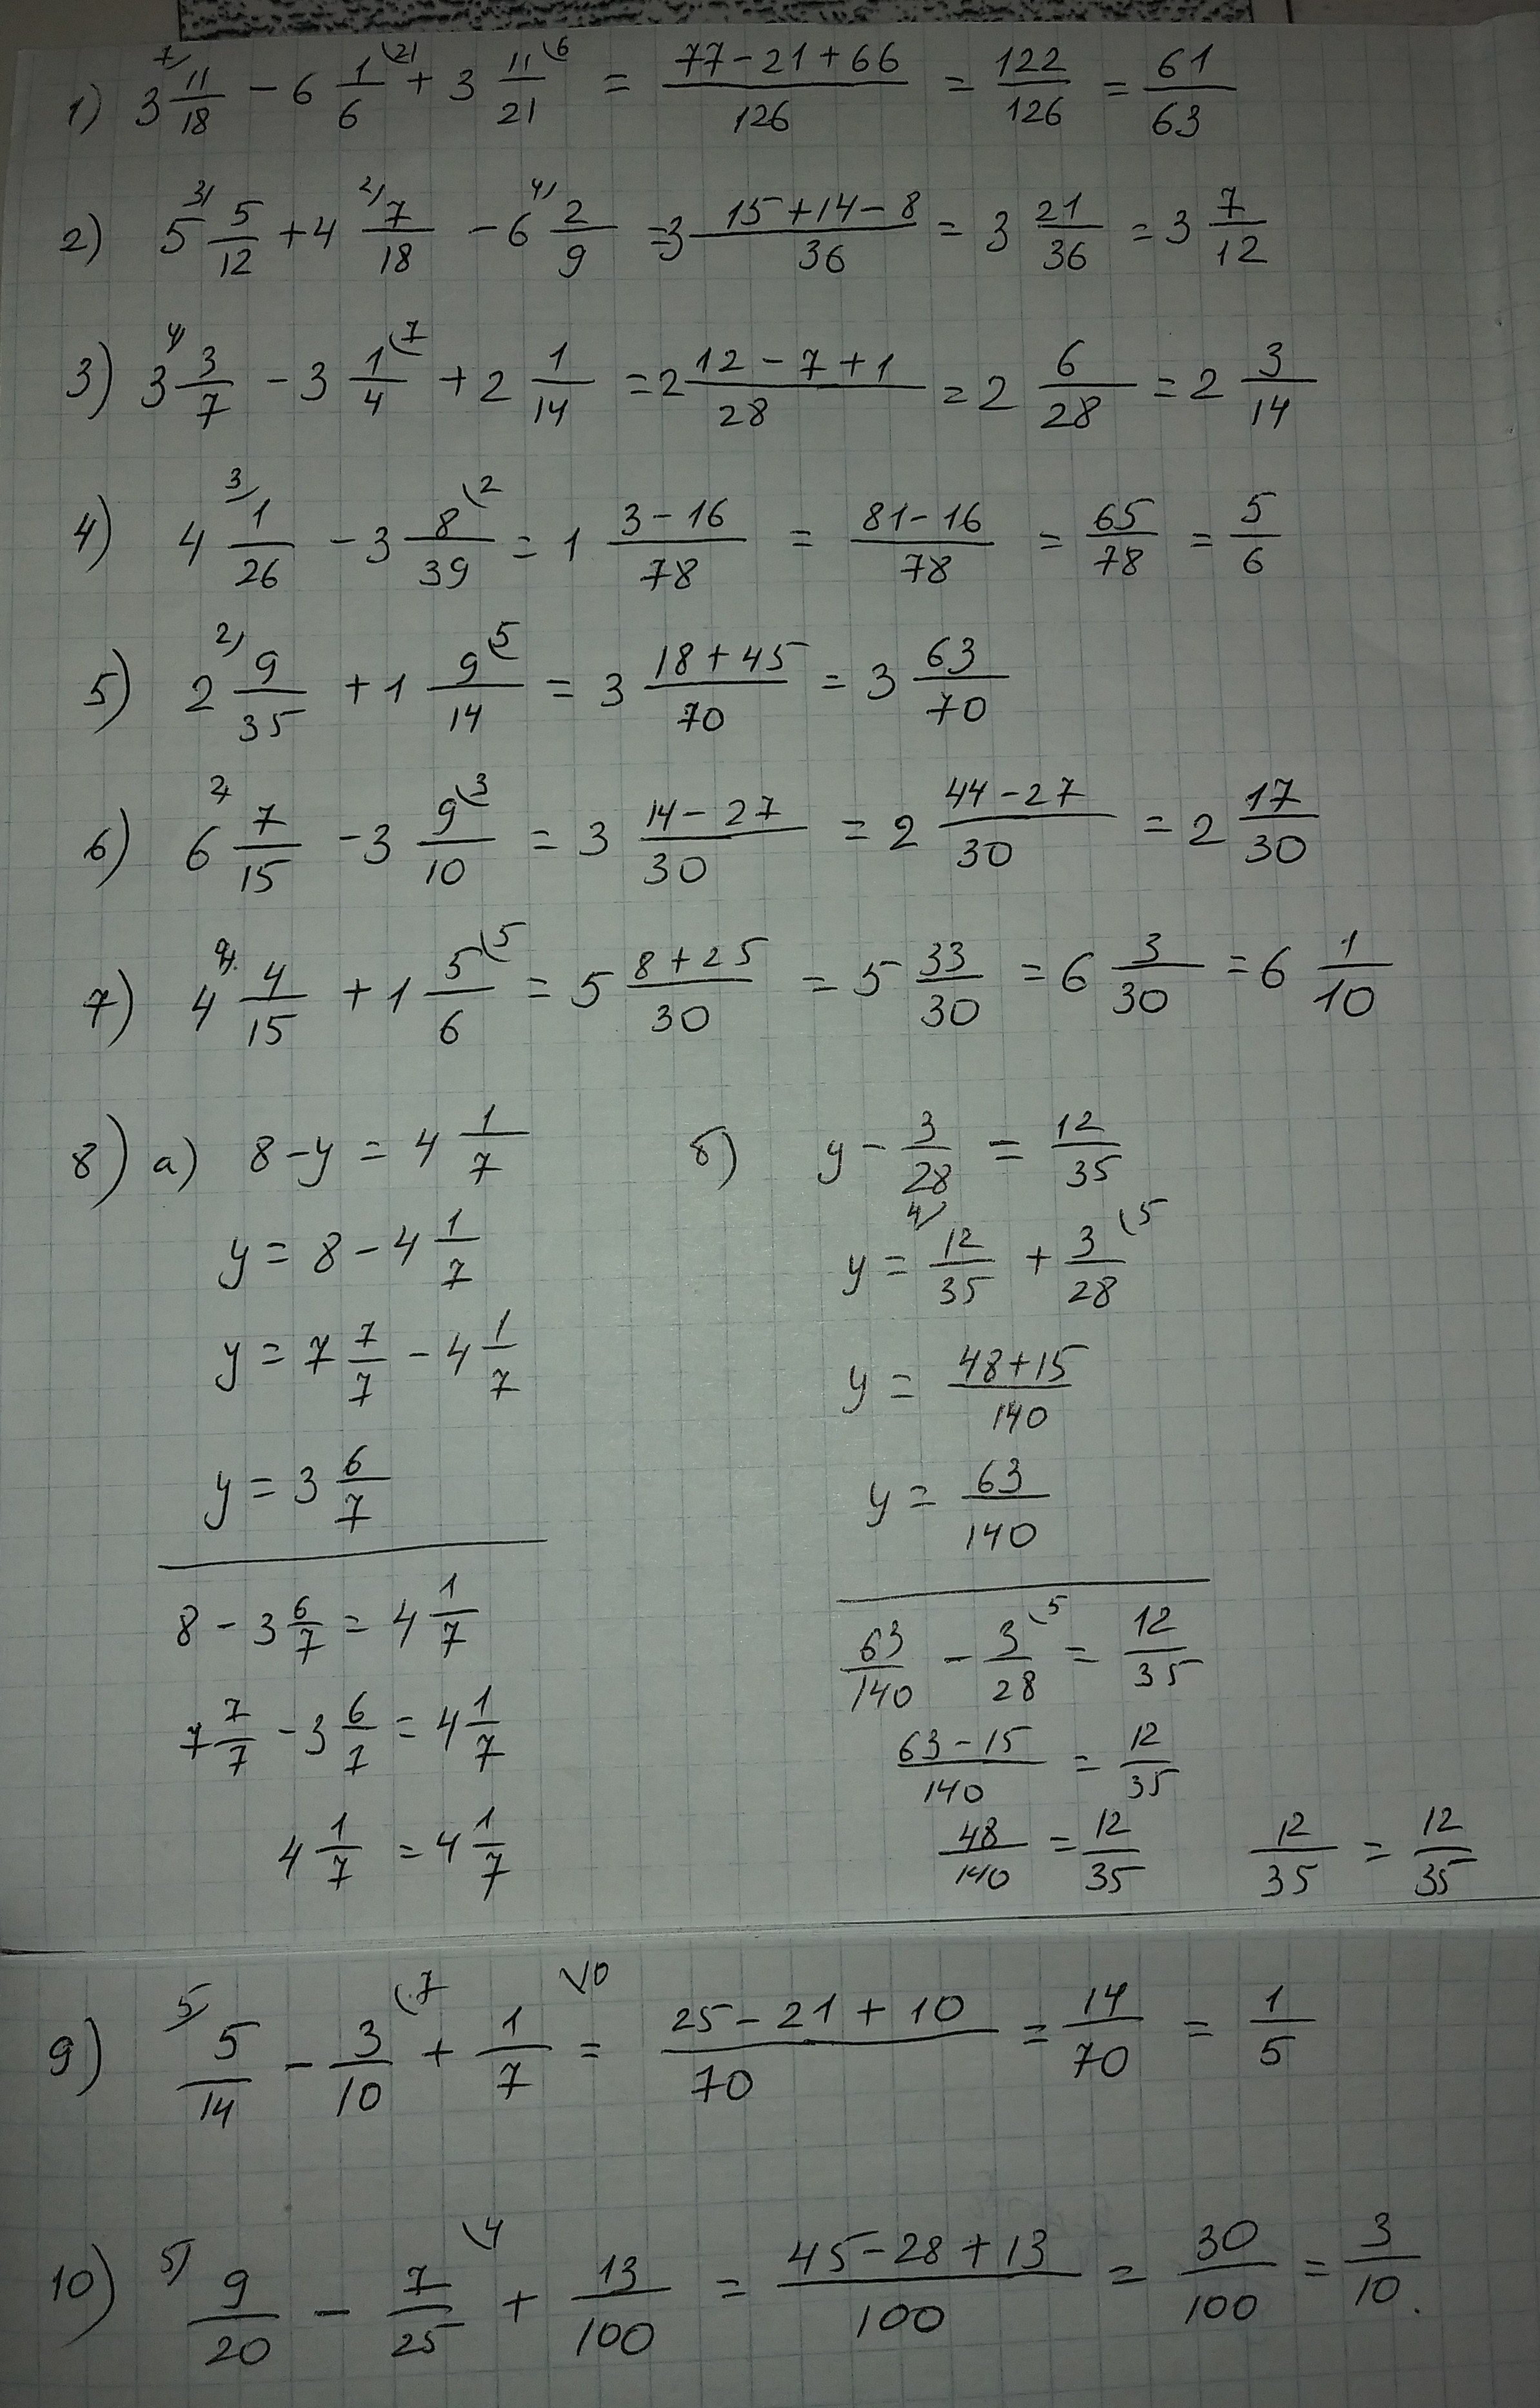 1) 3 11/18 - 6 1/6 + 3 11/21 = (77-21+66)/126 = 122/126 = 61/63
2) 5 5/12 + 4 7/18 - 6 2/9 = 3 (15+14-8)/36 = 3 21/36 = 3 7/12
3) 3 3/7 - 3 1/4 + 2 1/14 = 2 (12-7+1)/28 = 2 6/28 = 2 3/14
4) 4 1/26 - 3 8/39 = 1 (3-16)/78 = (81-16)/78 = 65/78 = 5/6
5) 2 9/35 + 1 9/14 = 3 (18+45)/70 = 3 63/70
6) 6 7/15 - 3 9/10 = 3 (14-27)/30 = 2 (44-27)/30 = 2 17/30
7) 4 4/15 + 1 5/6 = 5 (8+25)/30 = 5 33/30 = 6 3/30 = 6 1/10
8) а) 8 - y = 4 1/7
y = 8 - 4 1/7
y = 7 7/7 - 4 1/7
y = 3 6/7
8 - 3 6/7 = 4 1/7
7 7/7 - 3 6/7 = 4 1/7
4 1/7 = 4 1/7
б) y - 3/28 = 12/35
y = 12/35 + 3/28
y = (48+15)/140
y = 63/140
63/140 - 3/28 = 12/35
(63-15)/140 = 12/35
48/140 = 12/35 12/35 = 12/35
9) 5/14 - 3/10 + 1/7 = (25-21+10)/70 = 14/70 = 1/5
10) 9/20 - 7/25 + 13/100 = (45-28+13)/100 = 30/100 = 3/10.